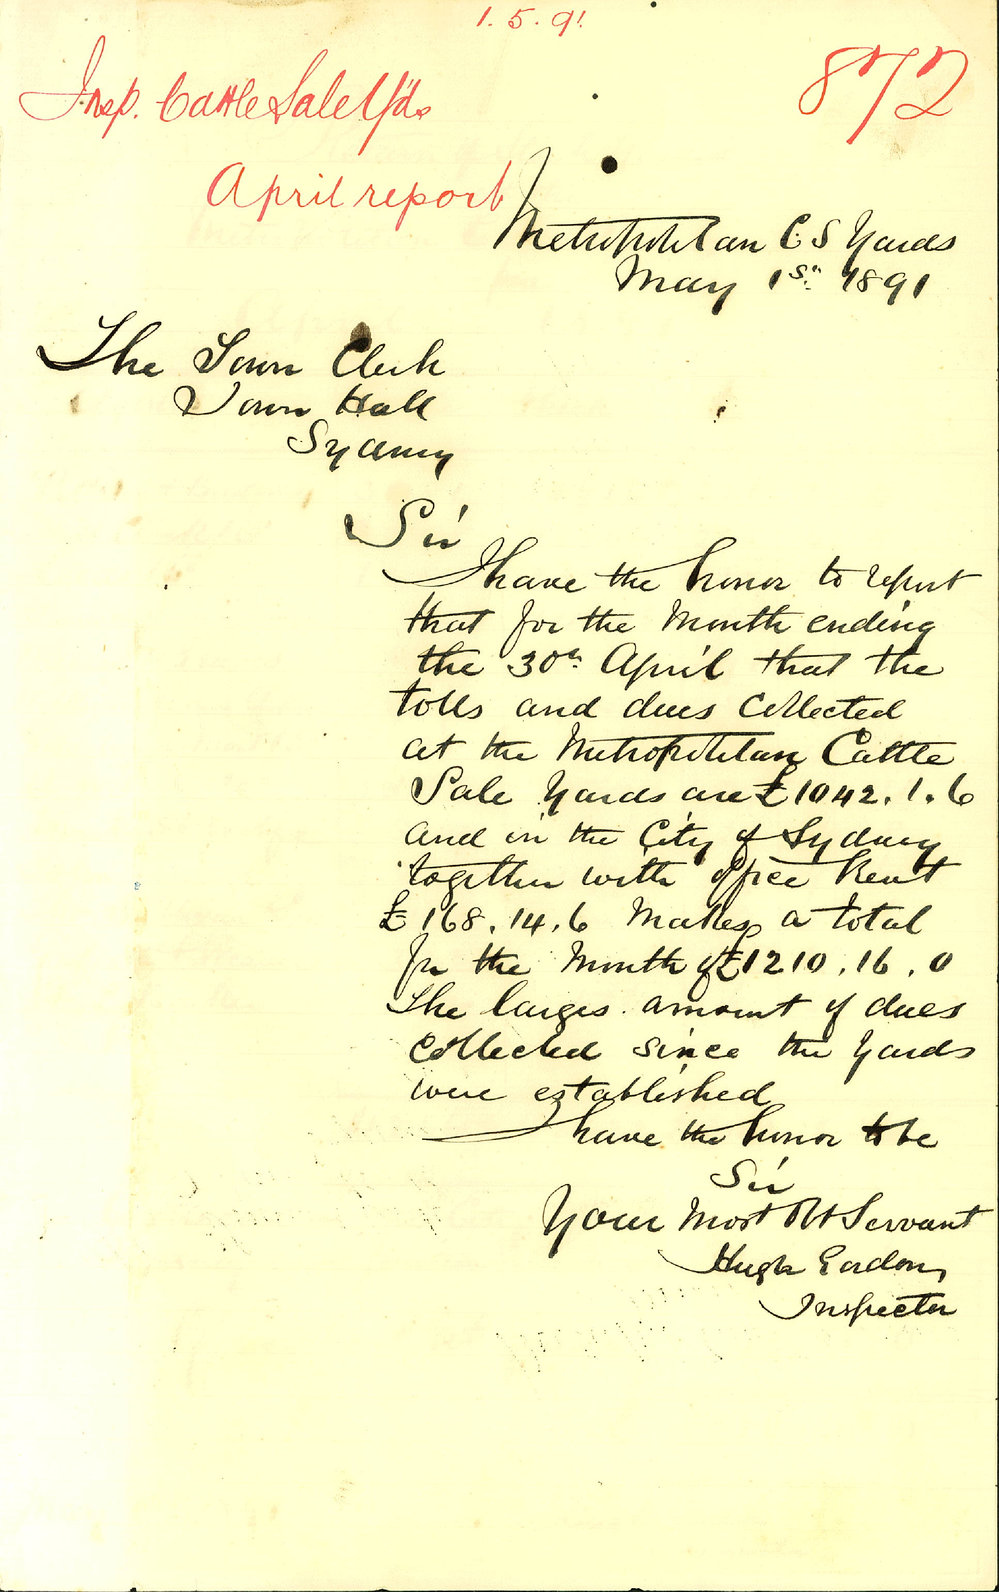 1.5.91
Insp. Cattle Sale Yds
872
April report
Metropolitan C S Yards
May 1st 1891
The Town Clerk
Town Hall
Sydney
Sir
I have the honor to report
that for the Month ending
the 30th April that the
tolls and dues collected
at the Metropolitan Cattle
Sale Yards are £1042.1.6
and in the City of Sydney
together with office Rent
£168.14.6 Makes a total
for the Month of £1210.16.0
The larges amount of dues
collected since the Yards
were established
I have the honor to be
Sir
Your Most Obt Servant
Hugh Gordon
Inspector